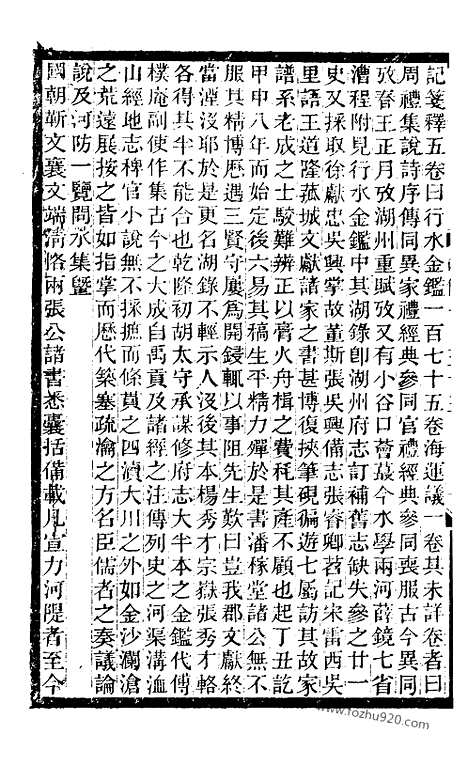 記箋釋五卷曰行水金鑑一百七十五卷海運議一卷其未詳卷者曰
周禮集說詩序傳同異家禮經典參同官禮經典參同喪服古今異同
攷春王正月攷湖州重賦攷又有小谷口薈蕞今水學兩河薛鏡七省
漕程附見行水金鑑中其湖錄卽湖州府志訂補舊志缺失參之廿一
史又採取徐獻忠吳興掌故董斯張吳興備志張睿卿苕記宋雷西吳
里語王道隆菰城文獻諸家之書甚博復挾筆硯徧遊七屬訪其故家
譜系老成之士駁難辨正以膏火舟楫之費耗其產不顧也起丁丑訖
甲申八年而始定後六易其稿生平精力殫於是書潘稼堂諸公無不
服其精博厯遇三賢守屢爲開鋟輒以事阻先生歎曰豈我郡文獻終
當湮沒耶於是更名湖錄不輕示人沒後其本楊秀才宗嶽張秀才輅
各得其半不能合也乾隆初胡太守承謀修府志大半本之金鑑代傅
樸庵副使作集古今之大成自禹貢及諸經之注傳列史之河渠溝洫
山經地志稗官小說無不採摭而條貫之四瀆大川之外如金沙瀾滄
之荒遠展按之皆如指掌而歷代築塞疏瀹之方名臣儒者之奏議論
說及河防一覽問水集曁
國朝靳文襄文端清恪兩張公諸書悉囊括備載凡宣力河隄者至今
www.fozhu920.com